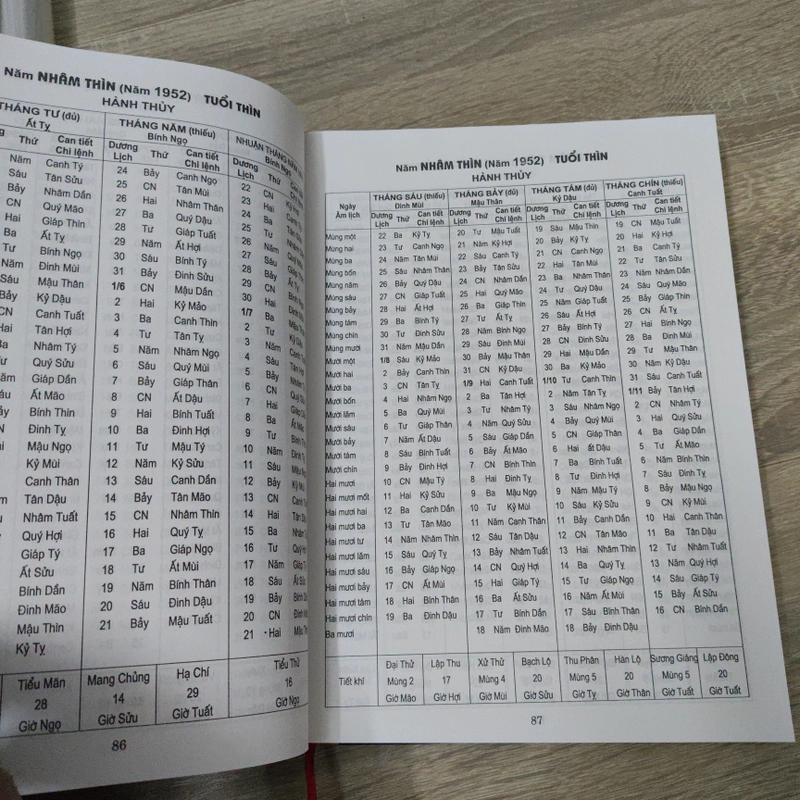 Năm NHÂM THÌN (Năm 1952) TUỔI THÌN
HÀNH THỦY
THÁNG TƯ (đủ) THÁNG NĂM (thiếu) NHUẬN THÁNG NĂM
Ất Tỵ Bính Ngọ Bính Ngọ
Thứ Can tiết Chi lệnh Dương Lịch Thứ Can tiết Chi lệnh Dương Lịch Thứ Can tiết Chi lệnh
Năm Canh Tý 24 Bảy Canh Ngọ 22 CN
Sáu Tân Sửu 25 CN Tân Mùi 23 Hai
Bảy Nhâm Dần 26 Hai Nhâm Thân 24 Ba
CN Quý Mão 27 Ba Quý Dậu 25 Tư
Hai Giáp Thìn 28 Tư Giáp Tuất 26 Năm
Ba Ất Tỵ 29 Năm Ất Hợi 27 Sáu
Tư Bính Ngọ 30 Sáu Bính Tý 28 Bảy
Năm Đinh Mùi 31 Bảy Đinh Sửu 29 CN
Sáu Mậu Thân 1/6 CN Mậu Dần 30 Hai
Bảy Kỷ Dậu 2 Hai Kỷ Mão 1/7 Ba
CN Canh Tuất 3 Ba Canh Thìn 2 Tư
Hai Tân Hợi 4 Tư Tân Tỵ 3 Năm
Ba Nhâm Tý 5 Năm Nhâm Ngọ 4 Sáu
Tư Quý Sửu 6 Sáu Quý Mùi 5 Bảy
Năm Giáp Dần 7 Bảy Giáp Thân 6 CN
Sáu Ất Mão 8 CN Ất Dậu 7 Hai
Bảy Bính Thìn 9 Hai Bính Tuất 8 Ba
CN Đinh Tỵ 10 Ba Đinh Hợi 9 Tư
Hai Mậu Ngọ 11 Tư Mậu Tý 10 Năm
Ba Kỷ Mùi 12 Năm Kỷ Sửu 11 Sáu
Canh Thân 13 Sáu Canh Dần 12 Bảy
Năm Tân Dậu 14 Bảy Tân Mão 13 CN
Sáu Nhâm Tuất 15 CN Nhâm Thìn 14 Hai
Quý Hợi 16 Hai Quý Tỵ 15 Ba
Giáp Tý 17 Ba Giáp Ngọ 16 Tư
Ất Sửu 18 Tư Ất Mùi 17 Năm
Bính Dần 19 Năm Bính Thân 18 Sáu
Đinh Mão 20 Sáu Đinh Dậu 19 Bảy
Mậu Thìn 21 Bảy Mậu Tuất 20 CN
Kỷ Tỵ 21 Hai
Tiểu Mãn Mang Chủng Hạ Chí Tiểu Thử
28 14 29 16
Giờ Ngọ Giờ Sửu Giờ Tuất Giờ Ngọ
86
Năm NHÂM THÌN (Năm 1952) TUỔI THÌN
HÀNH THỦY
Ngày Âm lịch THÁNG SÁU (thiếu) THÁNG BẢY (đủ) THÁNG TÁM (đủ) THÁNG CHÍN (thiếu)
Đinh Mùi Mậu Thân Kỷ Dậu Canh Tuất
Dương Lịch Thứ Can tiết Chi lệnh Dương Lịch Thứ Can tiết Chi lệnh Dương Lịch Thứ Can tiết Chi lệnh Dương Lịch Thứ Can tiết Chi lệnh
Mùng một 22 Ba Kỷ Tỵ 20 Tư Mậu Tuất 19 Sáu Mậu Thìn 19 CN Mậu Tuất
Mùng hai 23 Tư Canh Ngọ 21 Năm Kỷ Hợi 20 Bảy Kỷ Tỵ 20 Hai Kỷ Hợi
Mùng ba 24 Năm Tân Mùi 22 Sáu Canh Tý 21 CN Canh Ngọ 21 Ba Canh Tý
Mùng bốn 25 Sáu Nhâm Thân 23 Bảy Tân Sửu 22 Hai Tân Mùi 22 Tư Tân Sửu
Mùng năm 26 Bảy Quý Dậu 24 CN Nhâm Dần 23 Ba Nhâm Thân 23 Năm Nhâm Dần
Mùng sáu 27 CN Giáp Tuất 25 Hai Quý Mão 24 Tư Quý Dậu 24 Sáu Quý Mão
Mùng bảy 28 Hai Ất Hợi 26 Ba Giáp Thìn 25 Năm Giáp Tuất 25 Bảy Giáp Thìn
Mùng tám 29 Ba Bính Tý 27 Tư Ất Tỵ 26 Sáu Ất Hợi 26 CN Ất Tỵ
Mùng chín 30 Tư Đinh Sửu 28 Năm Bính Ngọ 27 Bảy Bính Tý 27 Hai Bính Ngọ
Mùng mười 31 Năm Mậu Dần 29 Sáu Đinh Mùi 28 CN Đinh Sửu 28 Ba Đinh Mùi
Mười một 1/8 Sáu Kỷ Mão 30 Bảy Mậu Thân 29 Hai Mậu Dần 29 Tư Mậu Thân
Mười hai 2 Bảy Canh Thìn 31 CN Kỷ Dậu 30 Ba Kỷ Mão 30 Năm Kỷ Dậu
Mười ba 3 CN Tân Tỵ 1/9 Hai Canh Tuất 1/10 Tư Canh Thìn 31 Sáu Canh Tuất
Mười bốn 4 Hai Nhâm Ngọ 2 Ba Tân Hợi 2 Năm Tân Tỵ 1/11 Bảy Tân Hợi
Mười lăm 5 Ba Quý Mùi 3 Tư Nhâm Tý 3 Sáu Nhâm Ngọ 2 CN Nhâm Tý
Mười sáu 6 Tư Giáp Thân 4 Năm Quý Sửu 4 Bảy Quý Mùi 3 Hai Quý Sửu
Mười bảy 7 Năm Ất Dậu 5 Sáu Giáp Dần 5 CN Giáp Thân 4 Ba Giáp Dần
Mười tám 8 Sáu Bính Tuất 6 Bảy Ất Mão 6 Hai ất Dậu 5 Tư Ất Mão
Mười chín 9 Bảy Đinh Hợi 7 CN Bính Thìn 7 Ba Bính Tuất 6 Năm Bính Thìn
Hai mươi 10 CN Mậu Tý 8 Hai Đinh Tỵ 8 Tư Đinh Hợi 7 Sáu Đinh Tỵ
Hai mươi mốt 11 Hai Kỷ Sửu 9 Ba Mậu Ngọ 9 Năm Mậu Tý 8 Bảy Mậu Ngọ
Hai mươi hai 12 Ba Canh Dần 10 Tư Kỷ Mùi 10 Sáu Kỷ Sửu 9 CN Kỷ Mùi
Hai mươi ba 13 Tư Tân Mão 11 Năm Canh Thân 11 Bảy Canh Dần 10 Hai Canh Thân
Hai mươi tư 14 Năm Nhâm Thìn 12 Sáu Tân Dậu 12 CN Tân Mão 11 Ba Tân Dậu
Hai mươi lăm 15 Sáu Quý Tỵ 13 Bảy Nhâm Tuất 13 Hai Nhâm Thìn 12 Tư Nhâm Tuất
Hai mươi sáu 16 Bảy Giáp Ngọ 14 CN Quý Hợi 14 Ba Quý Tỵ 13 Năm Quý Hợi
Hai mươi bảy 17 CN Ất Mùi 15 Hai Giáp Tý 15 Tư Giáp Ngọ 14 Sáu Giáp Tý
Hai mươi tám 18 Hai Bính Thân 16 Ba Ất Sửu 16 Năm Ất Mùi 15 Bảy Ất Sửu
Hai mươi chín 19 Ba Đinh Dậu 17 Tư Bính Dần 17 Sáu Bính Thân 16 CN Bính Dần
Ba mươi 18 Năm Đinh Mão 18 Bảy Đinh Dậu
Tiết khí Đại Thử Lập Thu Xử Thử Bạch Lộ Thu Phân Hàn Lộ Sương Giáng Lập Đông
Mùng 2 17 Mùng 4 20 Mùng 5 20 Mùng 5 20
Giờ Mão Giờ Hợi Giờ Mùi Giờ Sửu Giờ Tỵ Giờ Thân Giờ Tuất Giờ Tuất
87